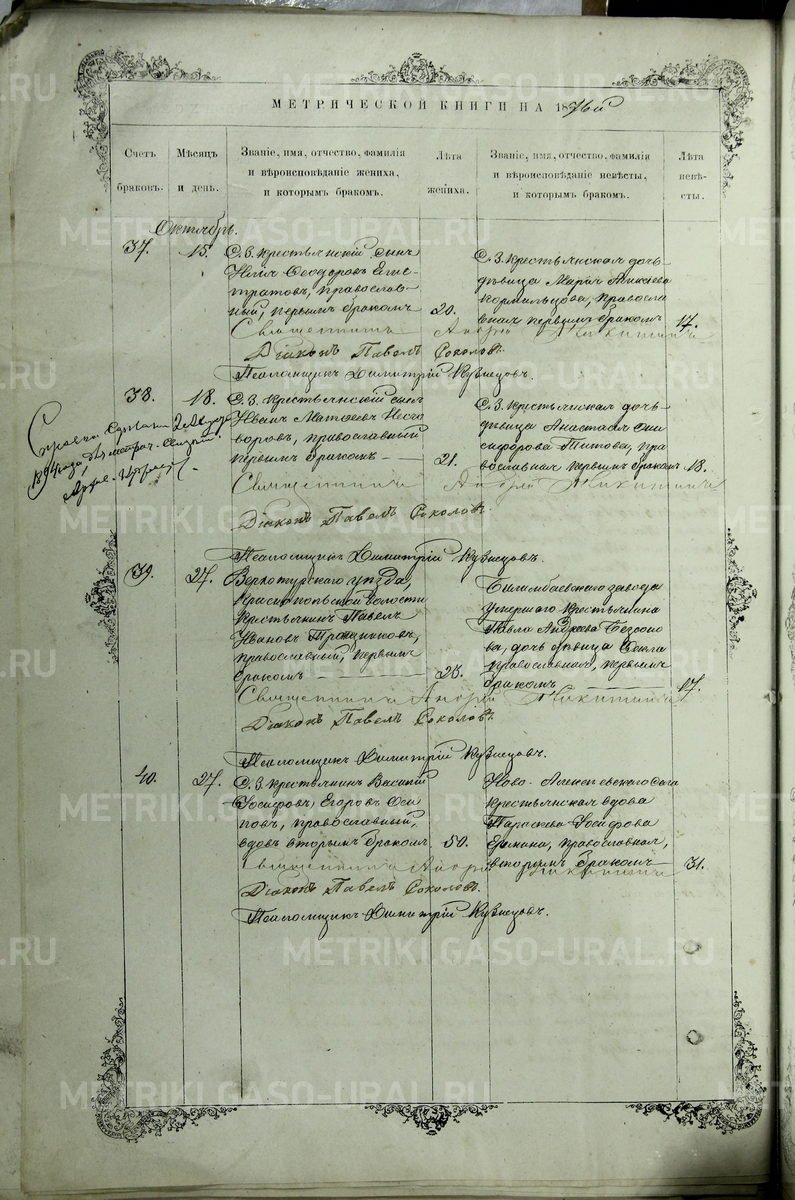 МЕТРИЧЕСКОЙ КНИГИ НА 1876й
Счетъ браковъ.
Мѣсяцъ и день.
Званіе, имя, отчество, фамилія и вѣроисповѣданіе жениха, и которымъ бракомъ.
Лѣта жениха.
Званіе, имя, отчество, фамилія и вѣроисповѣданіе невѣсты, и которымъ бракомъ.
Лѣта невѣсты.
Октябрь.
37. 15.
С. З. крестьянскій сынъ
Ѳеодоровъ Елис-
тратовъ, православ-
ный, первымъ бракомъ
20.
С. З. крестьянская дочь
дѣвица Марія Алексѣева
Кормильцова, правосла-
вная первымъ бракомъ
17.
Священникъ Андрей Никитинъ
Діаконъ Павелъ Соколовъ.
Псаломщикъ Димитрій Кузнецовъ.
38. 18.
С. З. крестьянскій сынъ
Иванъ Матѳеевъ Него-
воровъ, православный
первымъ бракомъ
21.
С. З. крестьянская дочь
дѣвица Анастасія Они-
сифорова Титова, пра-
вославная первымъ бракомъ
18.
Священникъ Андрей Никитинъ
Діаконъ Павелъ Соколовъ.
Псаломщикъ Димитрій Кузнецовъ.
39. 27.
Верхотурскаго уѣзда,
Краснопольской волости
крестьянинъ Павелъ
Ивановъ
православный, первымъ
бракомъ
23.
Билимбаевскаго завода
умершаго крестьянина
Павла Андреева Безсоно-
ва, дочь дѣвица
православная, первымъ
бракомъ
17.
Священникъ Андрей Никитинъ
Діаконъ Павелъ Соколовъ.
Псаломщикъ Димитрій Кузнецовъ.
40. 27.
С. З. крестьянинъ Василій
Іосифовъ Егоровъ Оси-
повъ, православный,
вдовъ вторымъ бракомъ
50.
Ново-Алексѣевскаго Села
крестьянская вдова
Параскева Іосифова
православная,
вторымъ бракомъ
31.
Священникъ Андрей Никитинъ
Діаконъ Павелъ Соколовъ.
Псаломщикъ Димитрій Кузнецовъ.
METRIKI.GASO-URAL.RU